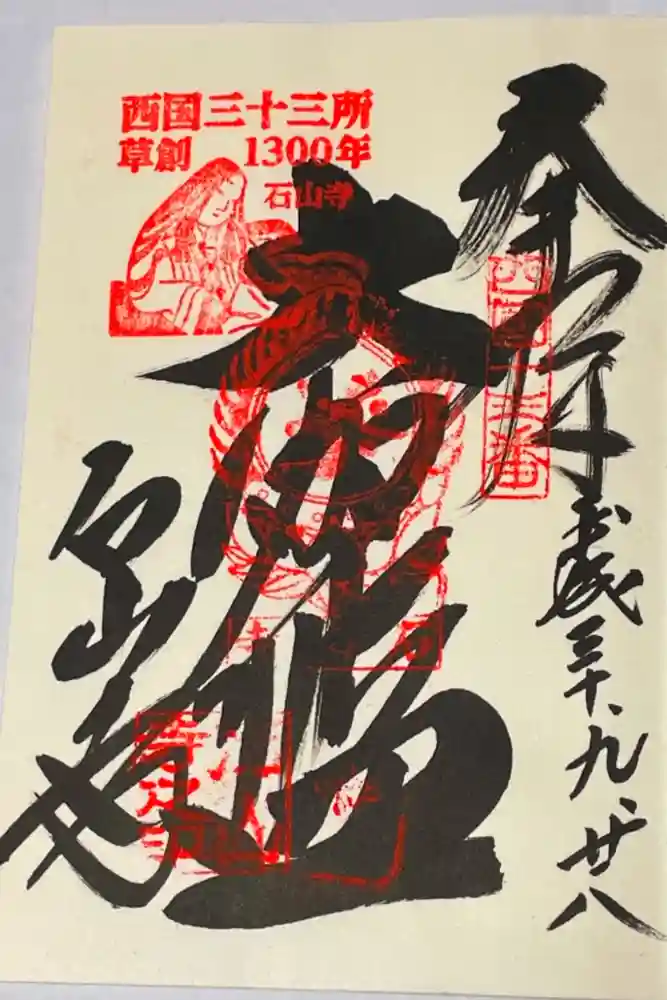 西国三十三所
草創 1300年
石山寺
奉拝
西国十三番
平成三十、九、廿八
大伽藍
石山寺